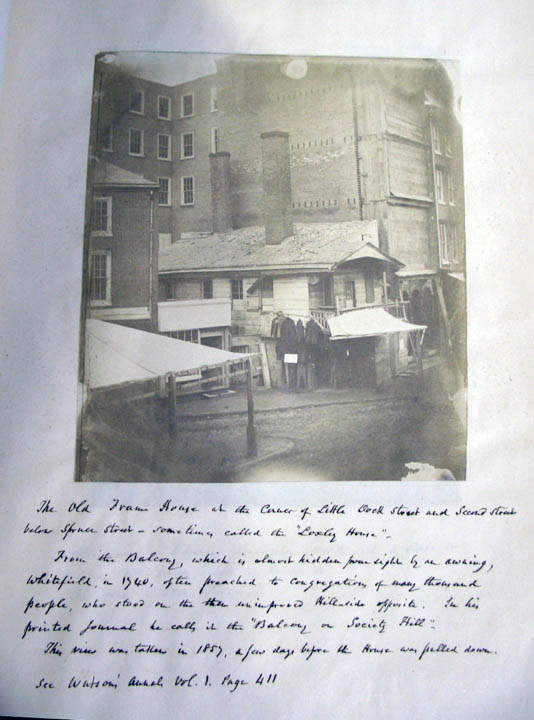 The Old Frame House at the Corner of Little Dock Street and Second Street
below Spruce Street – sometimes called the "Loxley House" –
From the Balcony, which is almost hidden from sight by an awning,
Whitefield, in 1740, often preached to congregations of many thousand
people, who stood on the then unimproved Hillside opposite. In his
printed Journal he calls it the "Balcony on Society Hill" –
This view was taken in 1857, a few days before the House was pulled down.
See Watson's Annals Vol. 1. Page 411